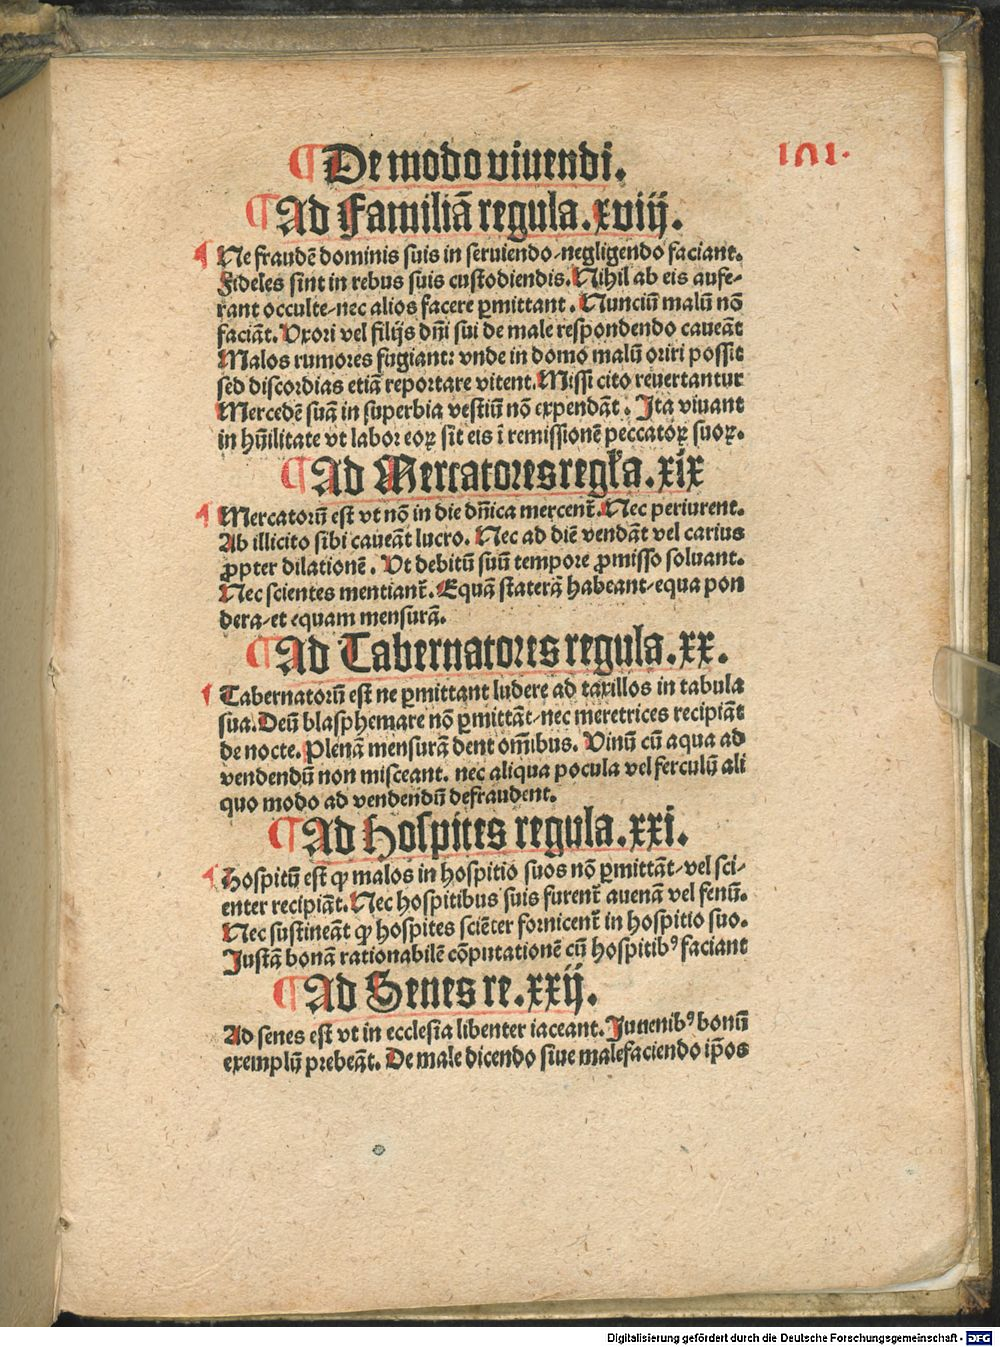 ¶ De modo viuendi.
101.
¶ Ad Familiā regula. xviij.
¶ Ne fraudē dominis suis in seruiendo/negligendo faciant.
Fideles sint in rebus suis custodiendis. Nihil ab eis aufe/
rant occulte/nec alios facere ꝑmittant. Nunciū malū nō
faciāt. Uxori vel filijs dn̄i sui de male respondendo caueāt
Malos rumores fugiant: vnde in domo malū oriri possit
sed discordias etiā reportare vitent. Missi cito reuertantur
Mercedē suā in superbia vestiū nō expendāt. Ita viuant
in hūilitate vt labor eoꝝ sit eis ī remissionē peccatoꝝ suoꝝ.
¶ Ad Mercatores regl̄a. xix
¶ Mercatorū est vt nō in die dn̄ica mercent̄. Nec periurent.
Ab illicito sibi caueāt lucro. Nec ad diē vendāt vel carius
ꝓpter dilationē. Ut debitū suū tempore ꝓmisso soluant.
Nec scientes mentiant̄. Equā staterā habeant/equa pon
dera/et equam mensurā.
¶ Ad Tabernatores regula. xx.
¶ Tabernatorū est ne ꝑmittant ludere ad taxillos in tabula
sua. Deū blasphemare nō ꝑmittāt/nec meretrices recipiāt
de nocte. Plenā mensurā dent om̄ibus. Vinū cū aqua ad
vendendū non misceant. nec aliqua pocula vel ferculū ali
quo modo ad vendendū defraudent.
¶ Ad Hospites regula. xxi.
¶ Hospitū est ꝙ malos in hospitio suos nō ꝑmittāt/vel sci/
enter recipiāt. Nec hospitibus suis furent̄ auenā vel fenū.
Nec sustineāt ꝙ hospites sciēter fornicent̄ in hospitio suo.
Justā bonā rationabilē cōputationē cū hospitibꝰ faciant
¶ Ad Senes re. xxij.
Ad senes est vt in ecclesia libenter iaceant. Juuenibꝰ bonū
exemplū prebeāt. De male dicendo siue malefaciendo ip̄os
Digitalisierung gefördert durch die Deutsche Forschungsgemeinschaft - DFG